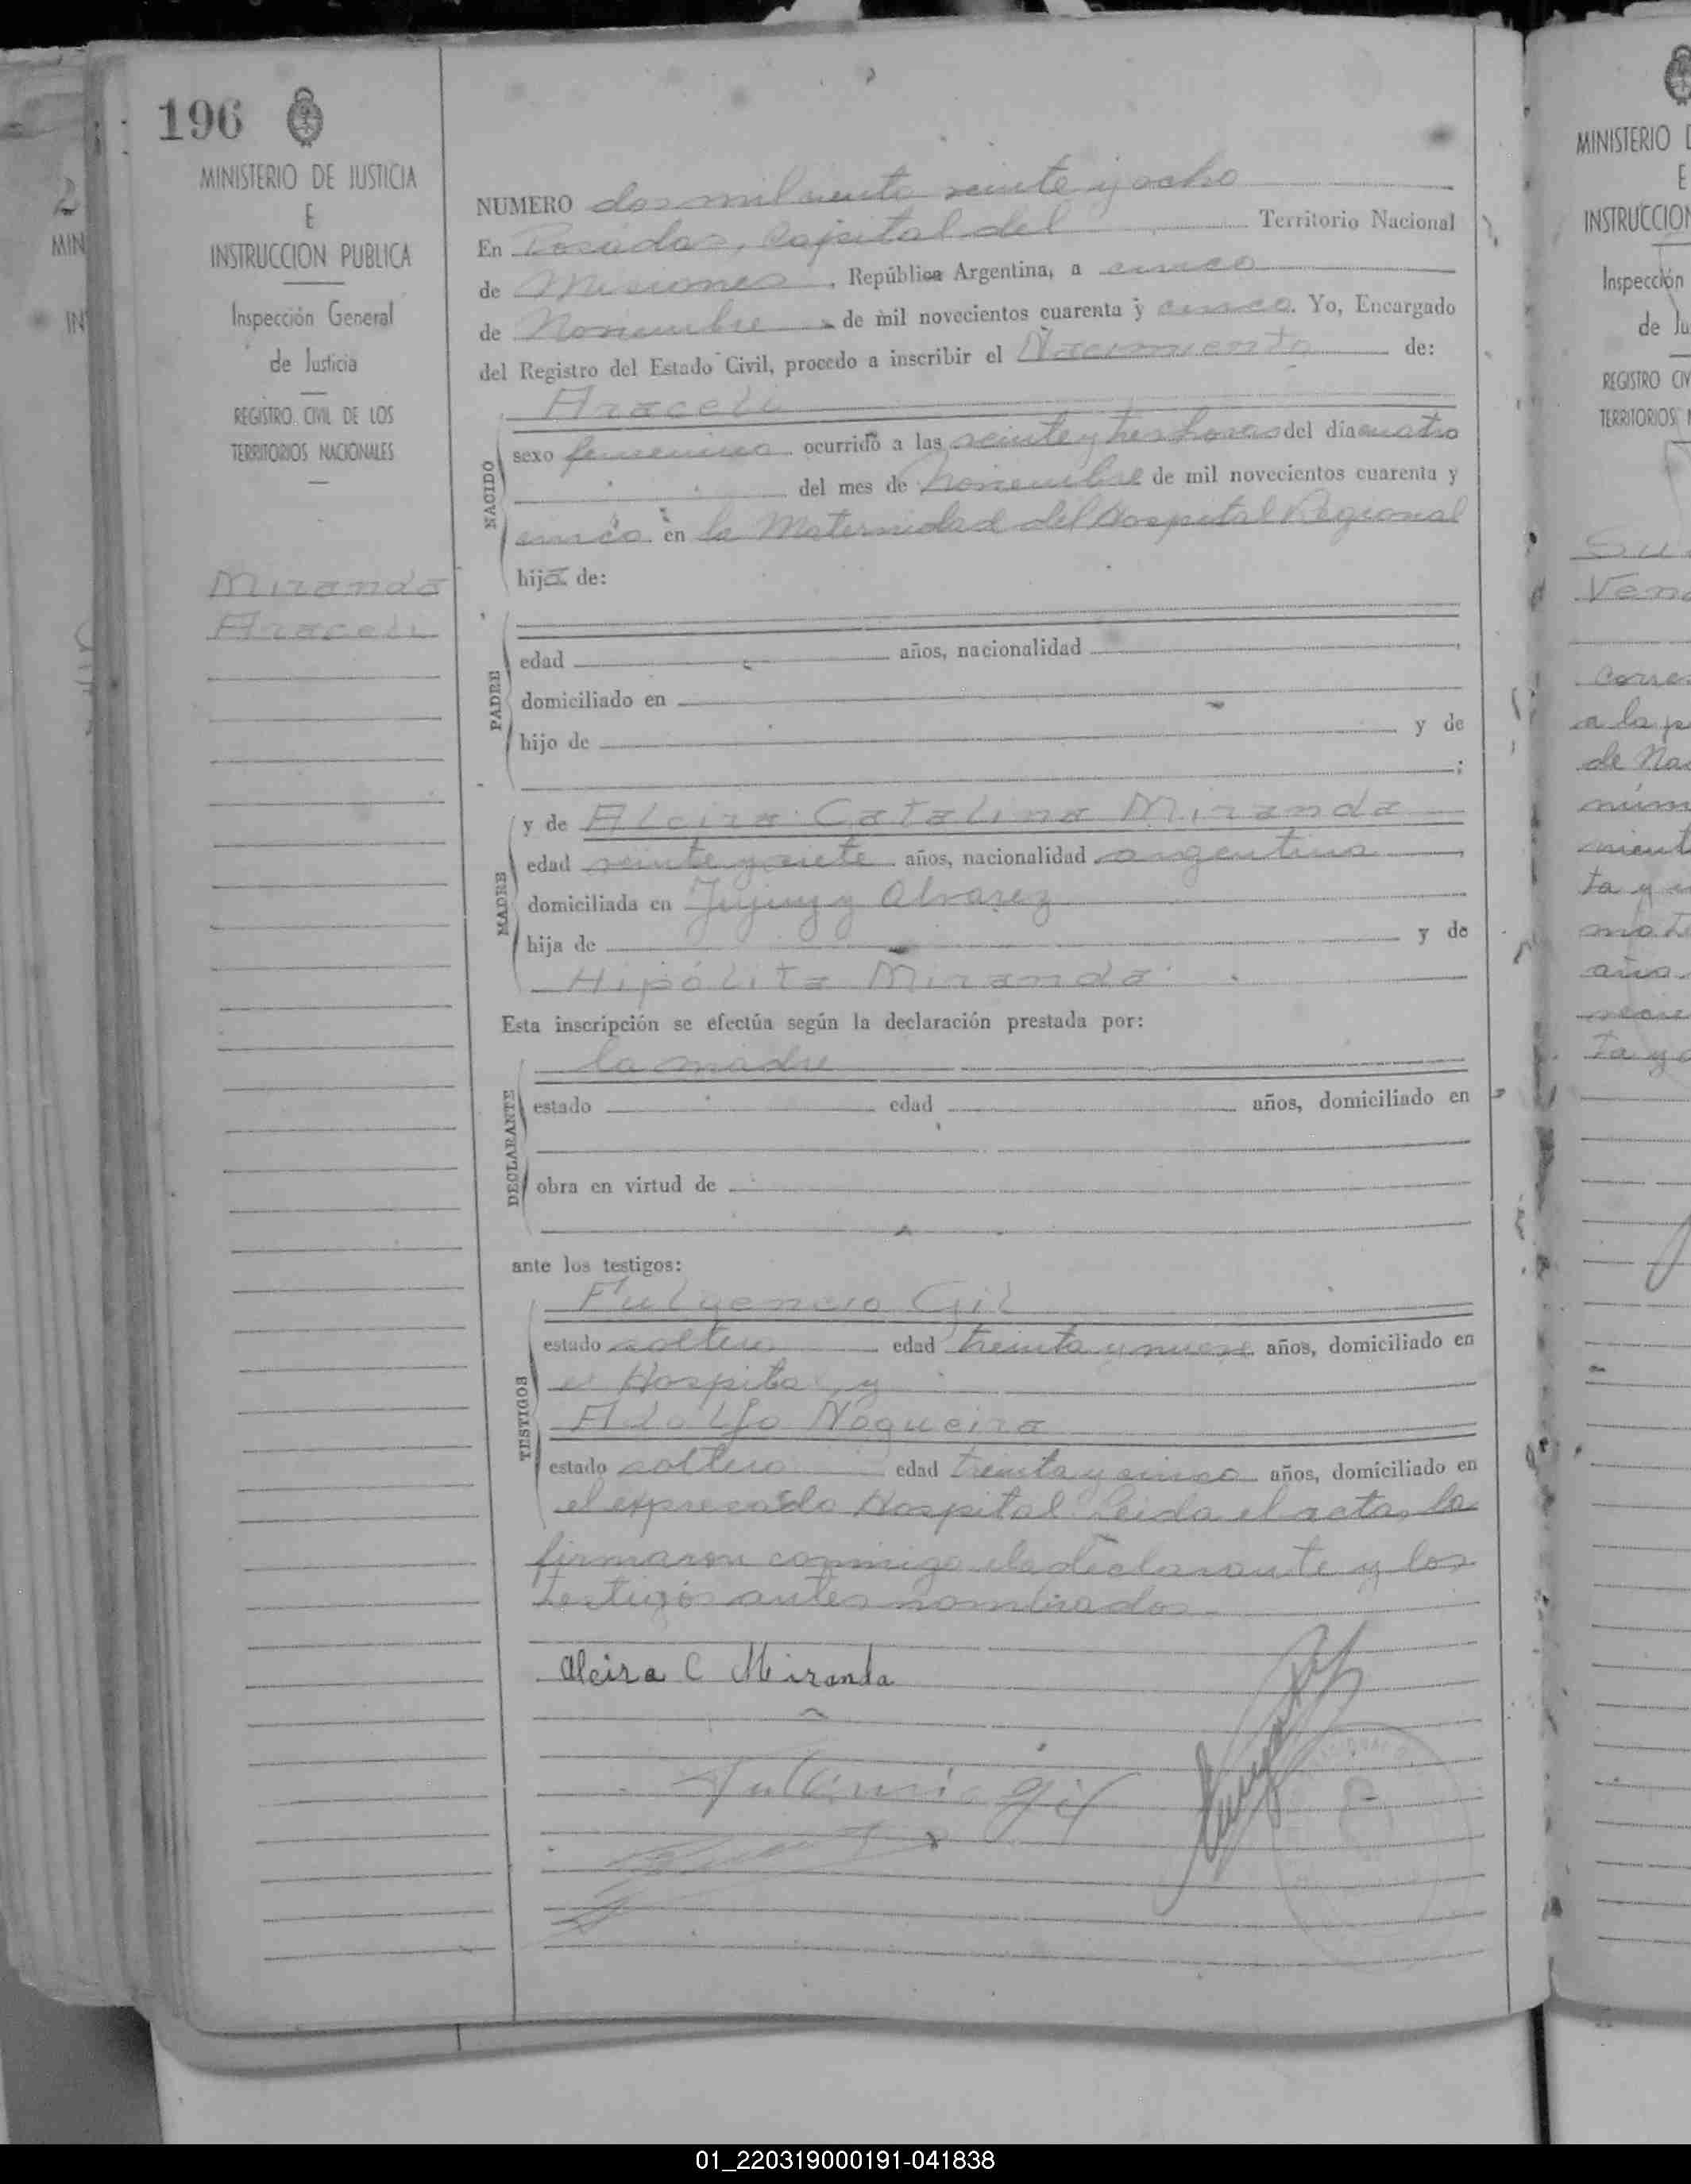 196
MINISTERIO DE JUSTICIA
E
INSTRUCCION PUBLICA
Inspección General
de Justicia
REGISTRO CIVIL DE LOS
TERRITORIOS NACIONALES
Miranda
Araceli
NUMERO dos mil ciento veinte y ocho
En Posadas, Capital del Territorio Nacional
de Misiones, República Argentina, a cinco
de Noviembre de mil novecientos cuarenta y cinco. Yo, Encargado
del Registro del Estado Civil, procedo a inscribir el Nacimiento de:
Araceli
NACIDO
sexo femenino ocurrido a las veinte y tres horas del día cuatro
del mes de Noviembre de mil novecientos cuarenta y
cinco en la Maternidad del Hospital Regional
hija de:
PADRE
edad años, nacionalidad
domiciliado en
hijo de y de
;
MADRE
y de Alcira Catalina Miranda
edad veinte y siete años, nacionalidad argentina
domiciliada en Jujuy y Alvarez
hija de y de
Hipólita Miranda
Esta inscripción se efectúa según la declaración prestada por:
DECLARANTE
la madre
estado edad años, domiciliado en
obra en virtud de
ante los testigos:
TESTIGOS
Fulgencio Gil
estado soltero edad treinta y nueve años, domiciliado en
el Hospital y
Adolfo Nogueira
estado soltero edad treinta y cinco años, domiciliado en
el expresado Hospital. Leida el acta, la
firmaron conmigo la declarante y los
testigos antes nombrados
Alcira C Miranda
Gil
MINISTERIO
E
INSTRUCCION
Inspección
REGISTRO
01_220319000191-041838